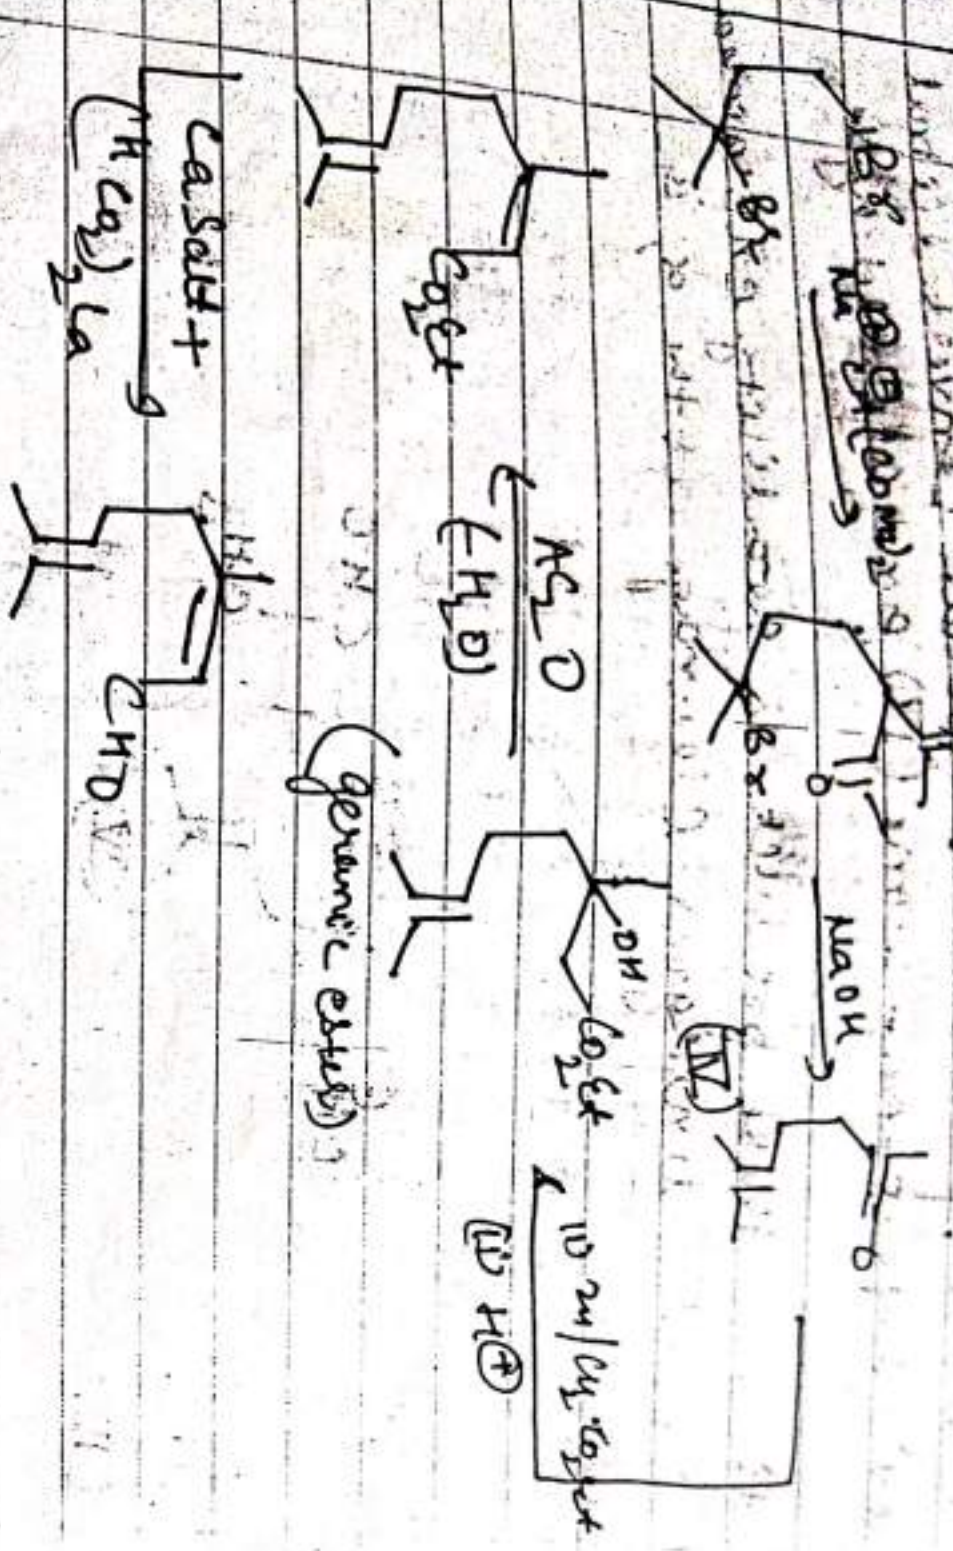 Br
Br
Na
O
Br
NaOH
O
(IV)
(i) Zn/CH2
(ii) H⊕
OH
CO2Et
AC2O
(-H2O)
CO2Et
(geranic ester)
Ca Salt +
(HCO2)2Ca
CHO